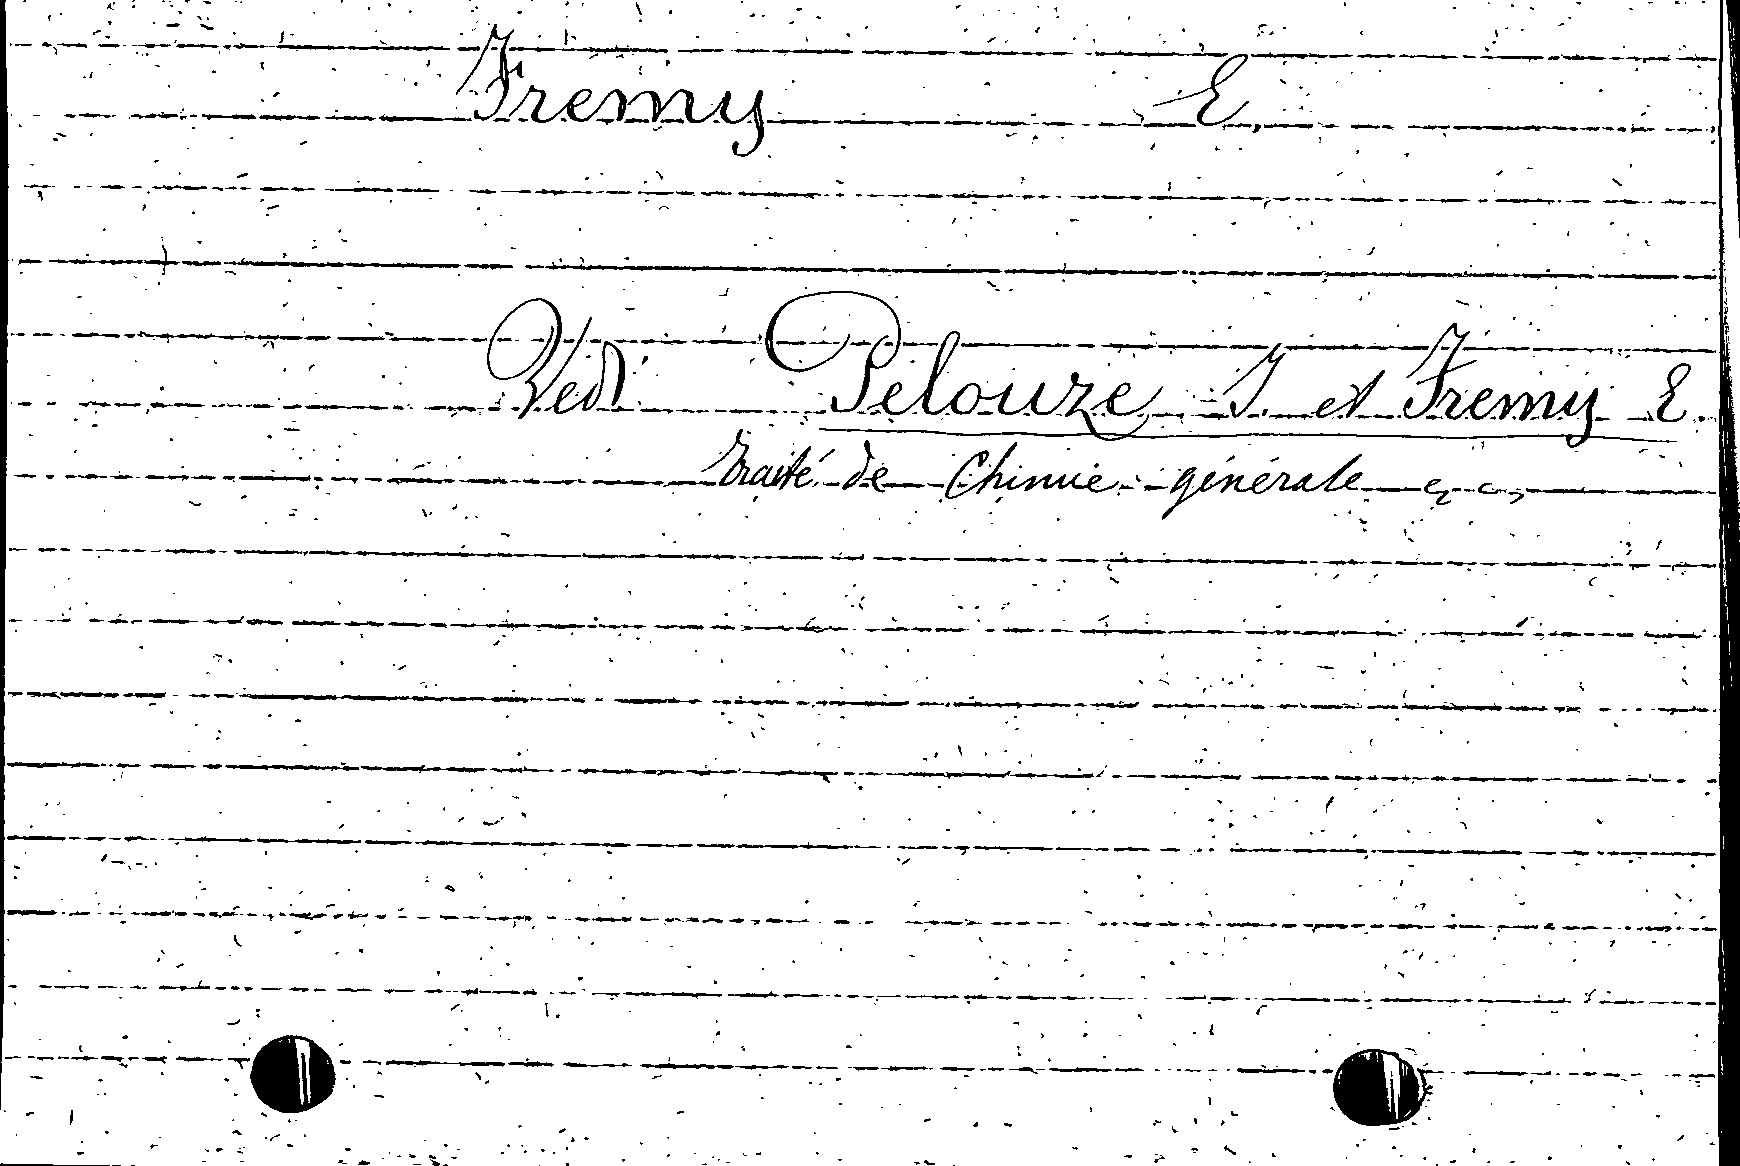 Fremy E.
Vedi Pelouze J. et Fremy E.
Traité de Chimie générale